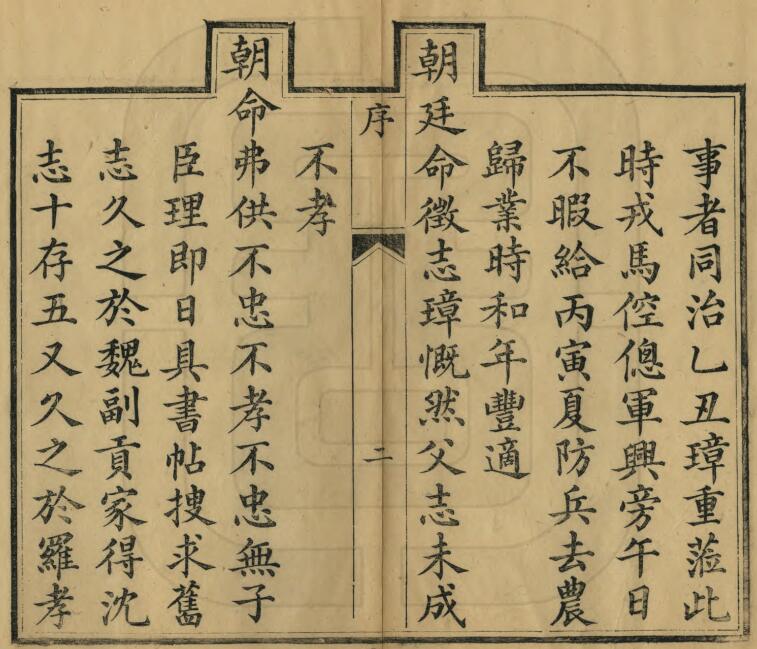 事者同治乙丑璋重蒞此
時戎馬倥傯軍興旁午日
不暇給丙寅夏防兵去農
歸業時和年豐適
朝廷命徵志璋慨然父志未成
序
二
不孝
朝命弗供不忠不孝不忠無子
臣理即日具書帖搜求舊
志久之於魏副貢家得沈
志十存五又久之於羅孝